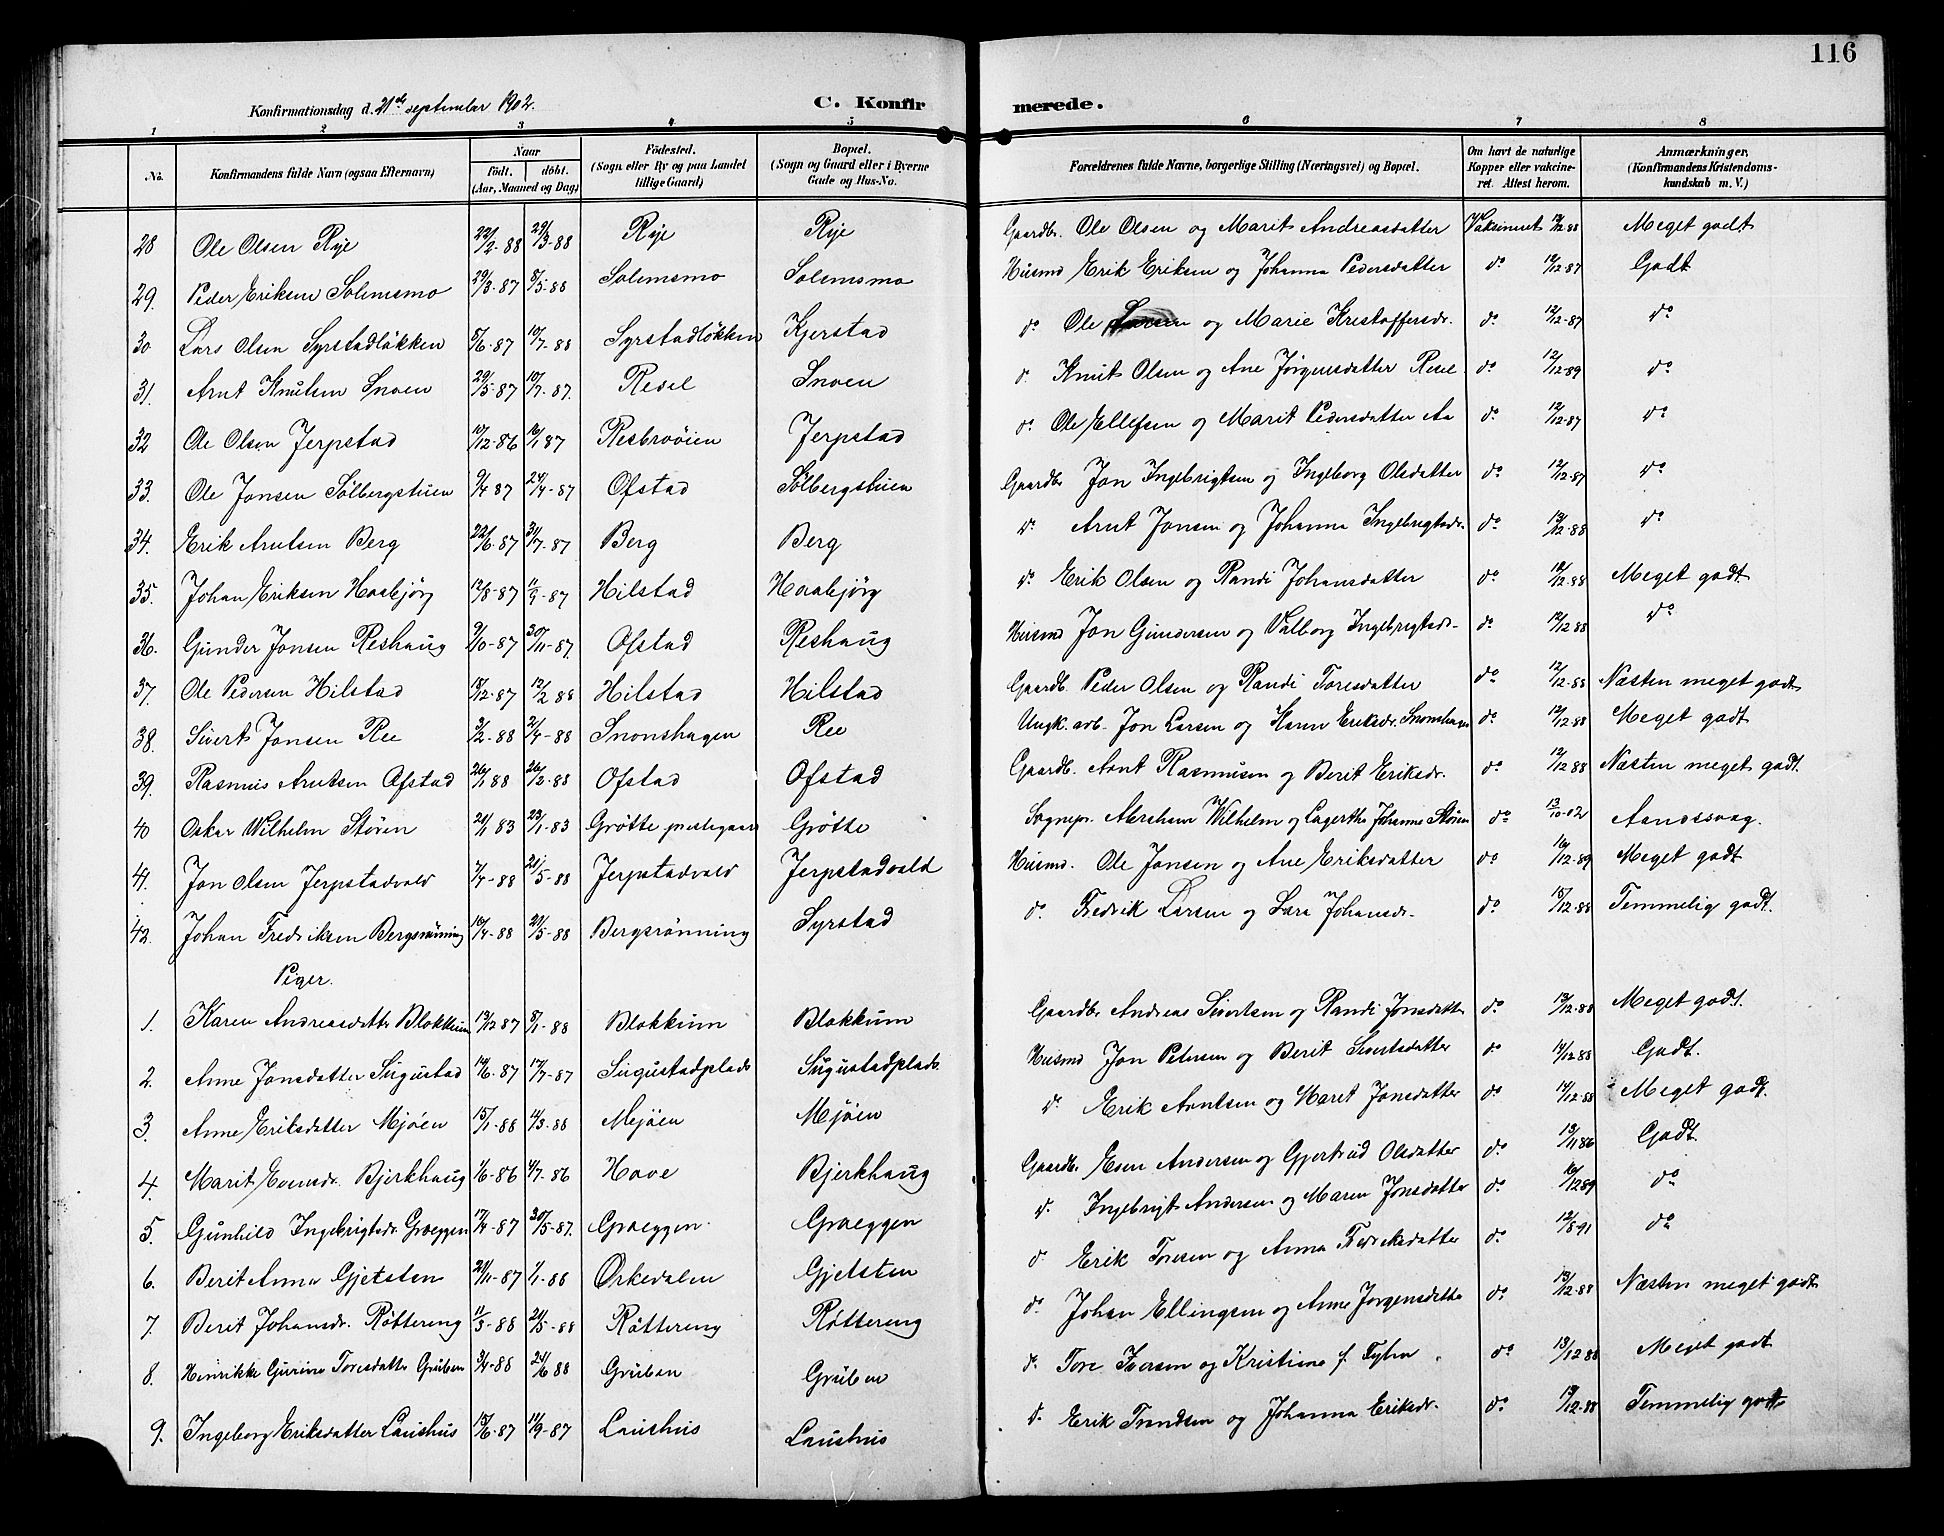 116
Konfirmationsdag d. 21de september 1902.
C. Konfirmerede.
1 2 3 4 5 6 7 8
No. Konfirmandens fulde Navn (ogsaa Efternavn). Naar Født. døbt. (Aar, Maaned og Dag). Fødested. (Sogn eller By og paa Landet tillige Gaard) Bopæl. (Sogn og Gaard eller i Byerne Gade og Hus-No. Forældrenes fulde Navne, borgerlige Stilling (Næringsvei) og Bopæl. Om havt de naturlige Kopper eller vakcineret. Attest herom. Anmærkninger. (Konfirmandens Kristendomskundskab m. V.)
28 Ole Olsen Rye 22/2-88 29/3-88 Rye Rye Gaardbr. Ole Olsen og Marit Andreasdatter Vaksineret 12/12-88 Meget godt
29. Peder Eriksen Solemsmo 29/3-87 8/5-88 Solemsmo Solemsmo Husmd Erik Eriksen og Johanna Pedersdatter do 12/12-87 Godt
30 Lars Olsen Syrstadløkken 8/6-87 10/7-88 Syrstadløkken Kjerstad do Ole Larsen og Marie Kristoffersdr. do 12/12-87 do
31. Arnt Knutsen Snoen 29/5-87 10/7-87. Resel Snoen d. Knut Olsen og Ane Jørgensdatter Resel do 12/12-89 do
32 Ole Olsen Jerpstad 10/12-86 16/1 87 Resbroøien Jerpstad do. Ole Ellefsen og Marit Pedersdatter Aa do 12/12-87 do
33. Ole Jonsen Sølbergstuen 9/4 87 24/4-87 Ofstad Sølbergstuen Gaardbr Jon Ingebrigtsen og Ingeborg Olsdatter do 12/12-87 do
34. Erik Arntsen Berg 22/6-87 31/7-87 Berg Berg do. Arnt Jonsen og Johanna Ingebrigtsdr. do 12/12-88 do
35. Johan Eriksen Haabjørg 12/8-87 11/9-87 Hilstad Haabjørg do Erik Olsen og Randi Johansdatter do 12/12-88 Meget godt
36. Gunder Jonsen Reshaug 9/10-87 30/11-87. Ofstad Reshaug Husmd Jon Gundersen og Valborg Ingebrigtsdr. do 12/12 88 do
37. Ole Pedersen Hilstad 18/12-87 12/2 88 Hilstad Hilstad Gaardb. Peder Olsen og Randi Toresdatter do 12/12-88 Næsten meget godt
38. Sivert Jonsen Ree 3/2-88 2/4-88 Snonshagen Ree Ungk. arb. Jon Larsen og Karen Eriksdr. Snonshagen do 12/12-88 Meget godt
39. Rasmus Arntsen Ofstad 26/1 88 26/2-88 Ofstad Ofstad Gaardb. Arnt Rasmusen og Berit Eriksdr. do 12/12 88 Næsten meget godt.
40 Oskar Wilhelm Støren 21/1 83 23/1-83 Grøtte prestegaard Grøtte Sognepr. Abraham Wilhelm og Lagertha Johanne Støren do 13/10-02 Aandssvag.
41. Jon Olsen Jerpstadvald 7/4-88 21/5-88 Jerpstadvald Jerpstadvald Husmd. Ole Jonsen og Ane Eriksdatter do 16/12-89 Meget godt
42. Johan Fredriksen Bergsrønning 16/4-88 21/5-88 Bergsrønning Syrstad do. Fredrik Larsen og Sara Johansdr. do 15/12-88 Temmelig godt.
Piger.
1. Karen Andreasdatter Blokkum 13/12 87 8/1-88 Blokkum Blokkum Gaardbr Andreas Sivertsen og Randi Jonsdatter do 12/12-88 Meget godt.
2. Anne Jonsdatter Sugustad 14/6-87 17/7-87 Sugustadplads Sugustadplads. Husmd Jon Petersen og Berit Sivertsdatter do 14/12 88 Godt.
3. Anne Eriksdatter Mjøen 15/1-88 14/3-88 Mejøen Mjøen do Erik Arntsen og Marit Jonsdatter do 14/12-88 Meget godt.
4. Marit Evensdr. Bjerkhaug 1/6-86 4/7-86 Hove Bjerkhaug Gaardbr. Esen Andersen og Gjertrud Olsdatter do 12/11 86 Godt.
5. Gunhild Ingebrigtsdr. Græggen 17/4-87 30/5-87. Græggen. Græggen do. Ingebrigt Andersen og Maren Jonsdatter do 16/12 89 do
6. Berit Anna Gjetsten 21/11-87 1/1-88 Ørkedalen Gjetsten do Erik Toresen og Anna Fredriksdatter do 12/8-91 do
7. Berit Johansdr. Røttereng 11/3-88 21/5-88 Røttereng Røttereng do. Johan Ellingsen og Anne Jørgensdatter do 13/12-88 Næsten meget godt
8. Henrikke Gurine Toresdatter Gruben 3/4-88 24/6 88 Gruben Gruben do. Tore Iversen og Kristine f. do 13/12 88 Meget godt
9. Ingeborg Eriksdatter Laushus 15/6-87 11/9-87 Laushus Laushus do. Erik Trondsen og Johanna Eriksdr. do 12/12-88 Temmelig godt